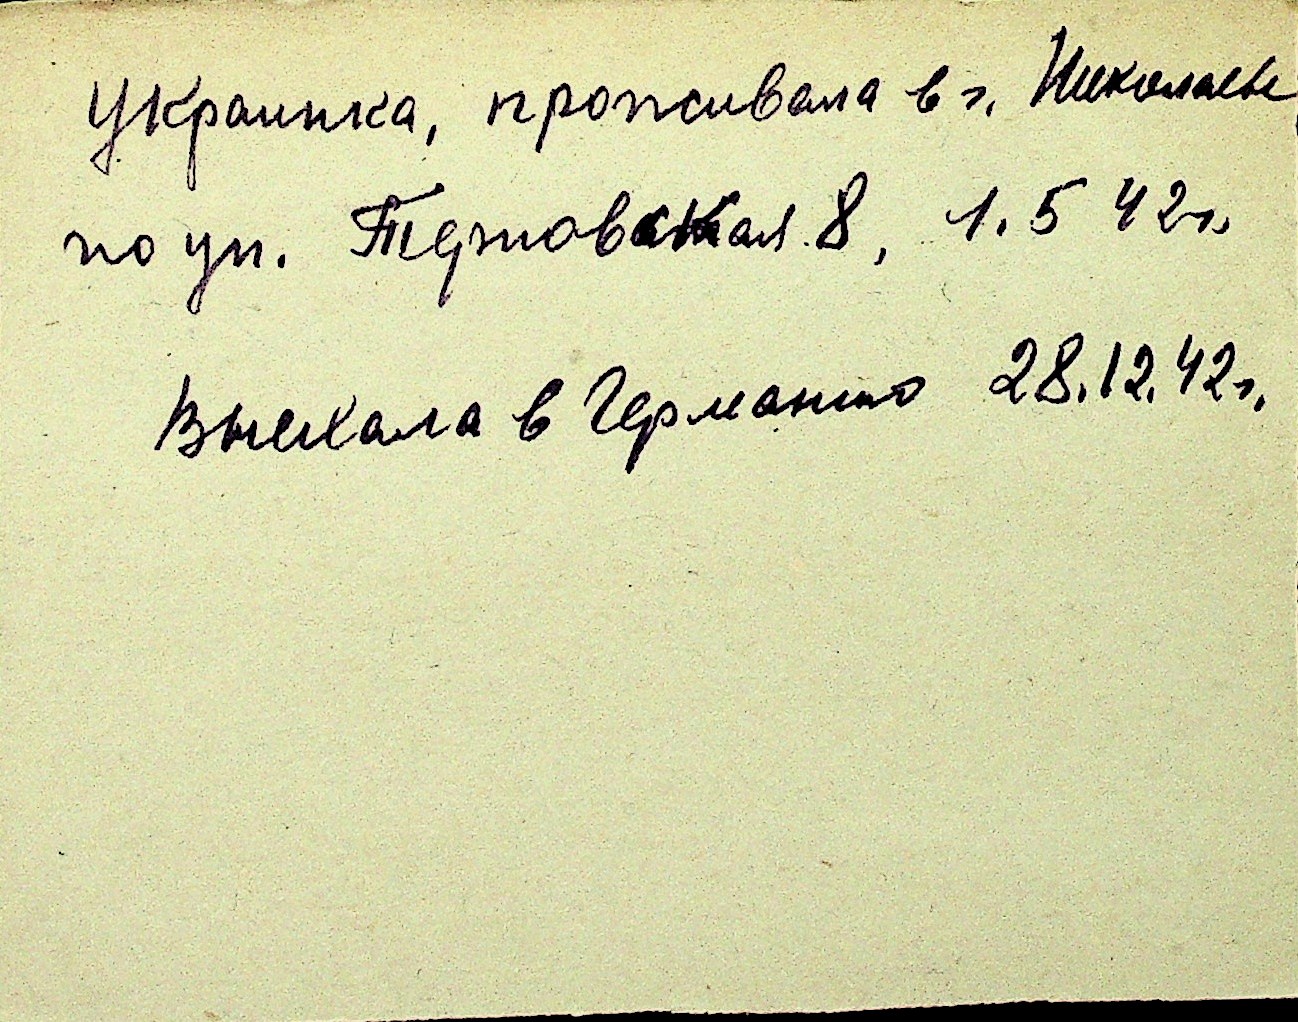 Украинка, проживала в г. Николаеве
по ул. 8, 1.5 42г.
Выехала в Германию 28.12.42г.